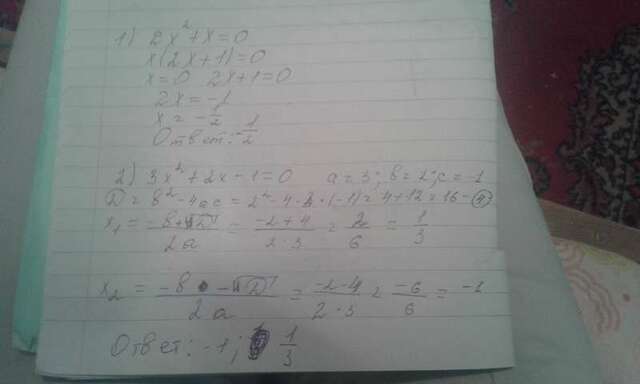 1) 2x²+x=0
x(2x+1)=0
x=0 2x+1=0
2x=-1
x=-1/2
Ответ: -1/2
2) 3x²+2x-1=0 a=3; в=2; с=-1
D=в²-4ac=2²-4·3·(-1)=4+12=16-④
x₁=(-в+√D)/2a=(-2+4)/(2·3)=2/6=1/3
x₂=(-в-√D)/2a=(-2-4)/(2·3)=-6/6=-1
Ответ: -1; 1/3